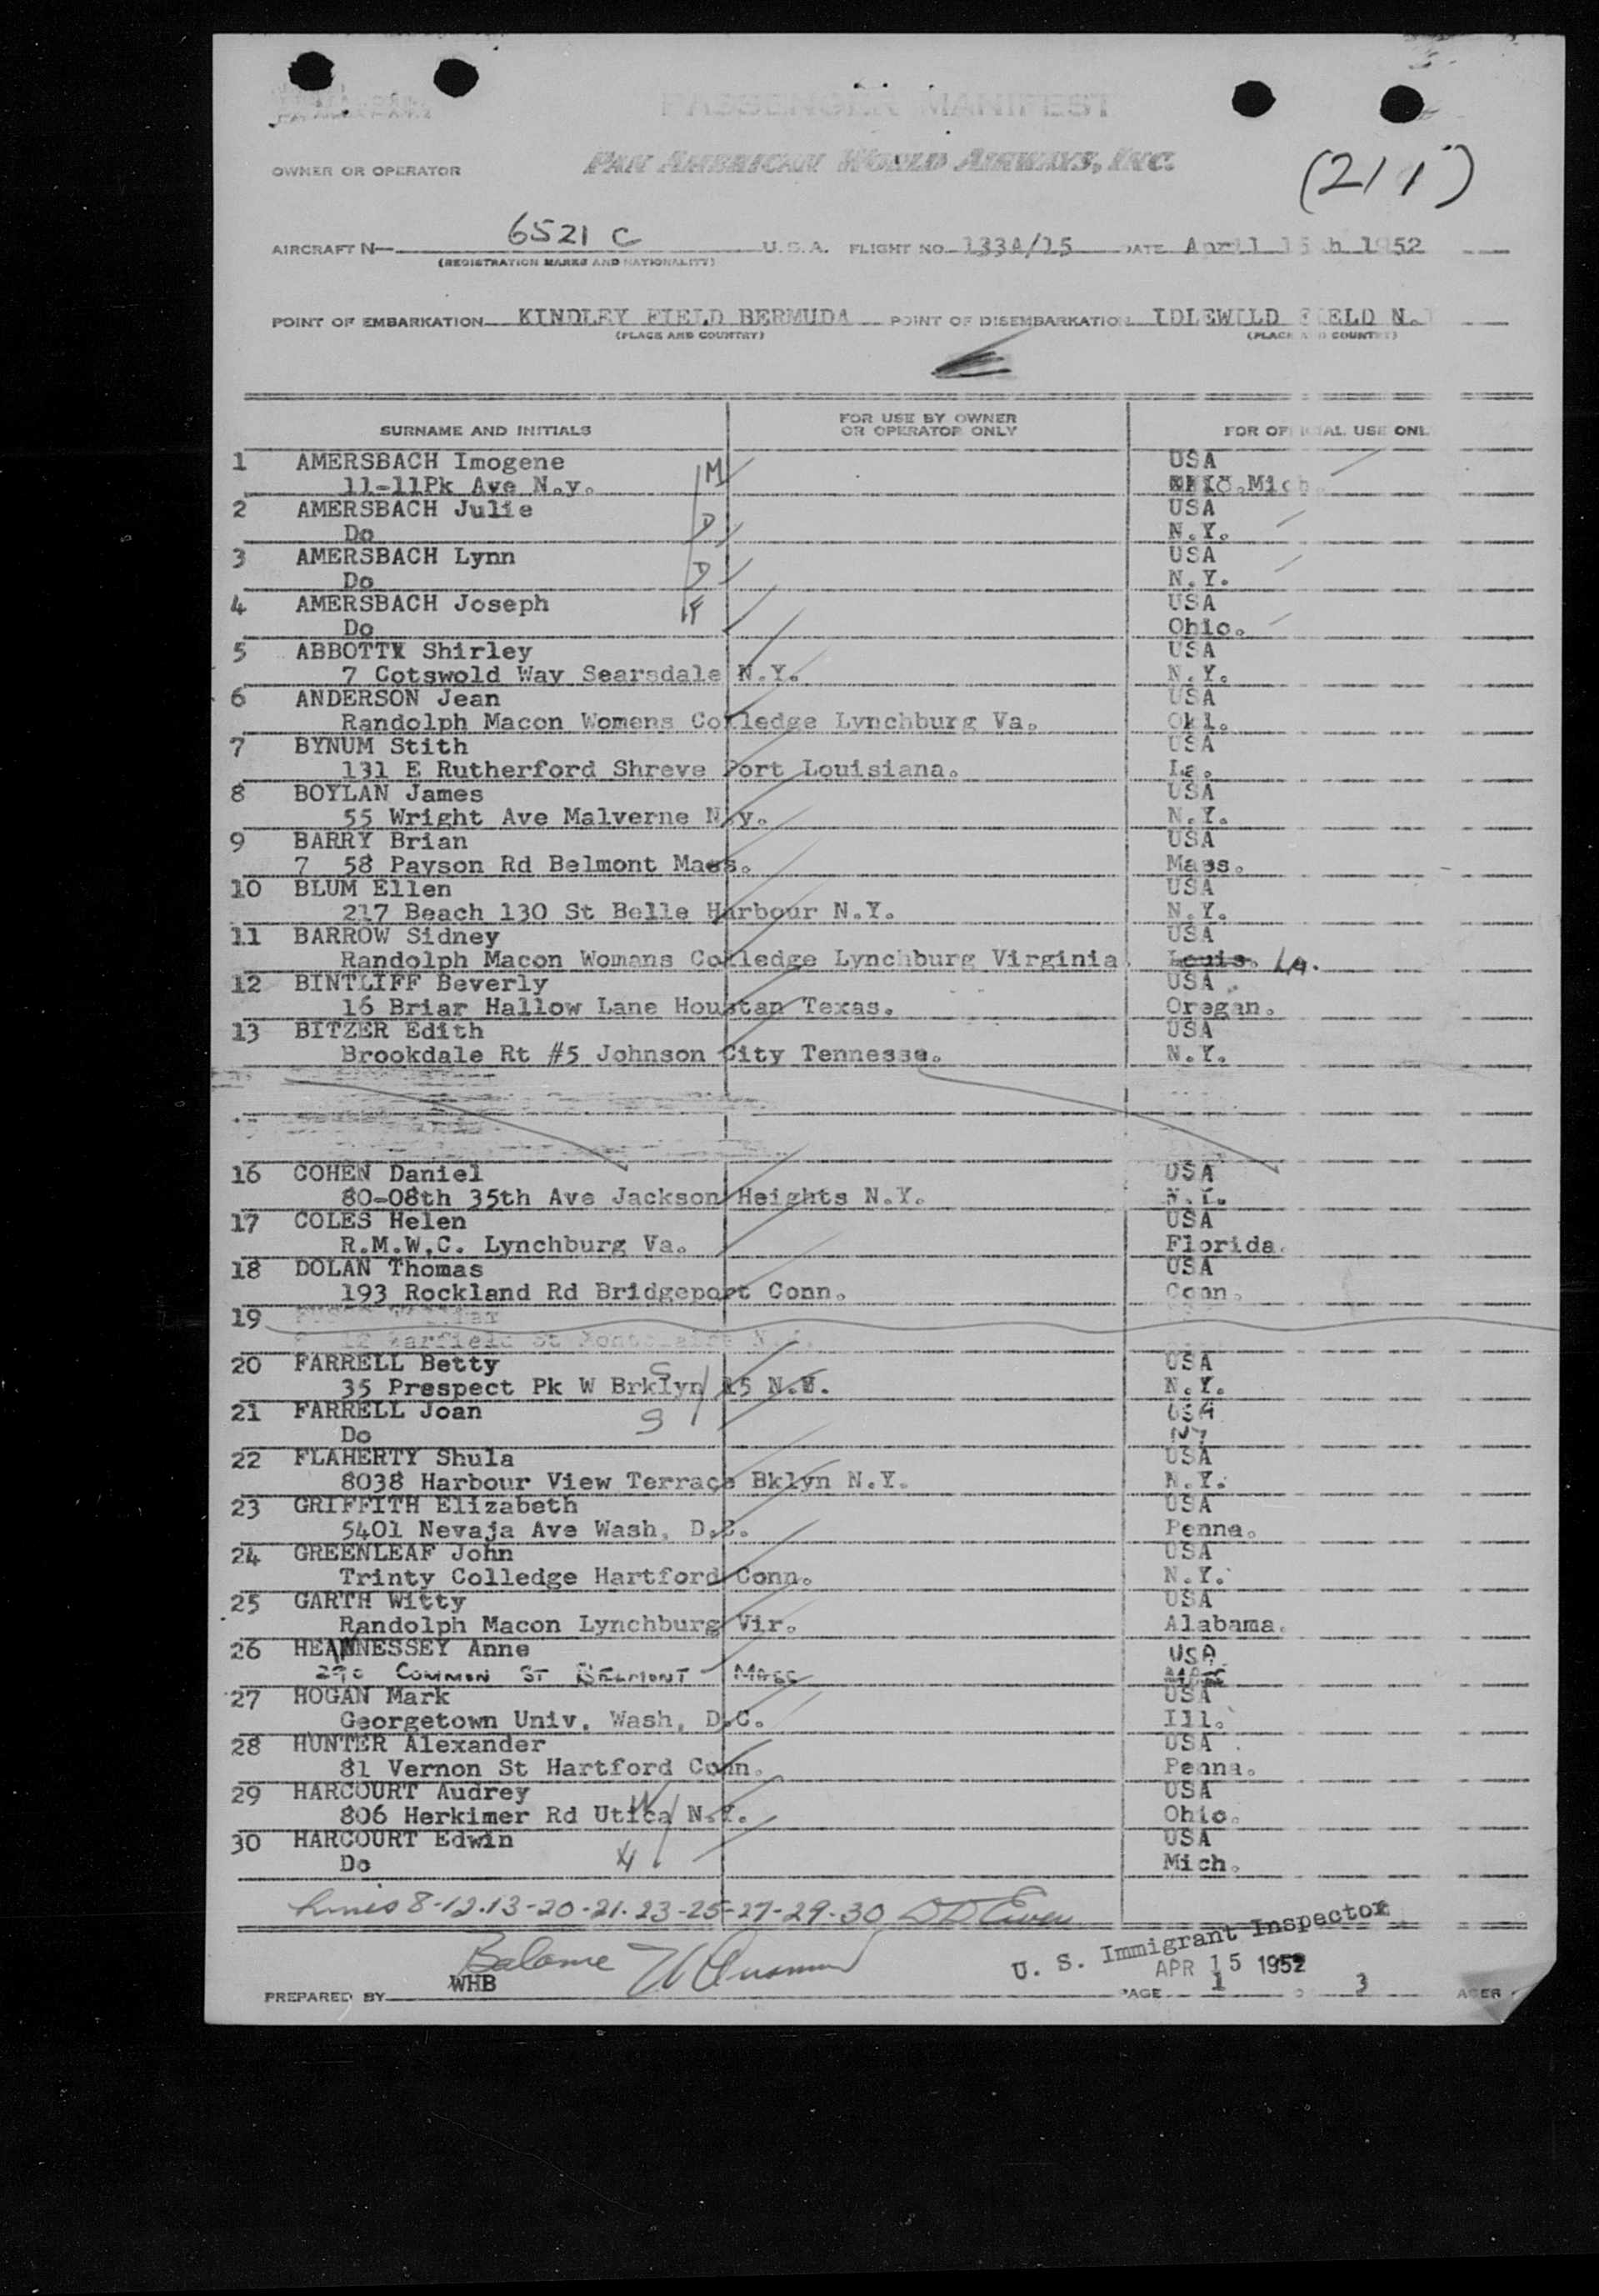 PASSENGER MANIFEST
OWNER OR OPERATOR PAN AMERICAN WORLD AIRWAYS, INC.
(211)
AIRCRAFT N— 6521 C U.S.A. FLIGHT NO. 133A/15 DATE April 15th 1952
(REGISTRATION MARKS AND NATIONALITY)
POINT OF EMBARKATION KINDLEY FIELD BERMUDA POINT OF DISEMBARKATION IDLEWILD FIELD N.
(PLACE AND COUNTRY) (PLACE AND COUNTRY)
SURNAME AND INITIALS FOR USE BY OWNER OR OPERATOR ONLY FOR OFFICIAL USE ONL
1 AMERSBACH Imogene M USA
11-11Pk Ave N.y. Mich.
2 AMERSBACH Julie USA
Do D N.Y.
3 AMERSBACH Lynn USA
Do D N.Y.
4 AMERSBACH Joseph F USA
Do Ohio.
5 ABBOTTX Shirley USA
7 Cotswold Way Searsdale N.Y. N.Y.
6 ANDERSON Jean USA
Randolph Macon Womens Colledge Lynchburg Va. Okl.
7 BYNUM Stith USA
131 E Rutherford Shreve Port Louisiana. La.
8 BOYLAN James USA
55 Wright Ave Malverne N.y. N.Y.
9 BARRY Brian USA
7 58 Payson Rd Belmont Mass. Mass.
10 BLUM Ellen USA
217 Beach 130 St Belle Harbour N.Y. N.Y.
11 BARROW Sidney USA
Randolph Macon Womans Colledge Lynchburg Virginia Louis. LA.
12 BINTLIFF Beverly USA
16 Briar Hallow Lane Houstan Texas. Oregan.
13 BITZER Edith USA
Brookdale Rt #5 Johnson City Tennesse. N.Y.
16 COHEN Daniel USA
80-08th 35th Ave Jackson Heights N.Y. N.Y.
17 COLES Helen USA
R.M.W.C. Lynchburg Va. Florida.
18 DOLAN Thomas USA
193 Rockland Rd Bridgeport Conn. Conn.
19
Garfield St
20 FARRELL Betty S USA
35 Prespect Pk W Brklyn 15 N.Y. N.Y.
21 FARRELL Joan S USA
Do NY
22 FLAHERTY Shula USA
8038 Harbour View Terrace Bklyn N.Y. N.Y.
23 GRIFFITH Elizabeth USA
5401 Nevaja Ave Wash, D.C. Penna.
24 GREENLEAF John USA
Trinty Colledge Hartford Conn. N.Y.
25 GARTH Witty USA
Randolph Macon Lynchburg Vir. Alabama.
26 HEANNESSEY Anne USA
290 COMMON ST BELMONT MASS MASS
27 HOGAN Mark USA
Georgetown Univ. Wash, D.C. Ill.
28 HUNTER Alexander USA
81 Vernon St Hartford Conn. Penna.
29 HARCOURT Audrey W USA
806 Herkimer Rd Utica N.Y. Ohio.
30 HARCOURT Edwin USA
Do H Mich.
Lines 8-12-13-20-21-23-25-27-29-30
Balance
U. S. Immigrant Inspector
APR 15 1952
PREPARED BY WHB PAGE 1 3